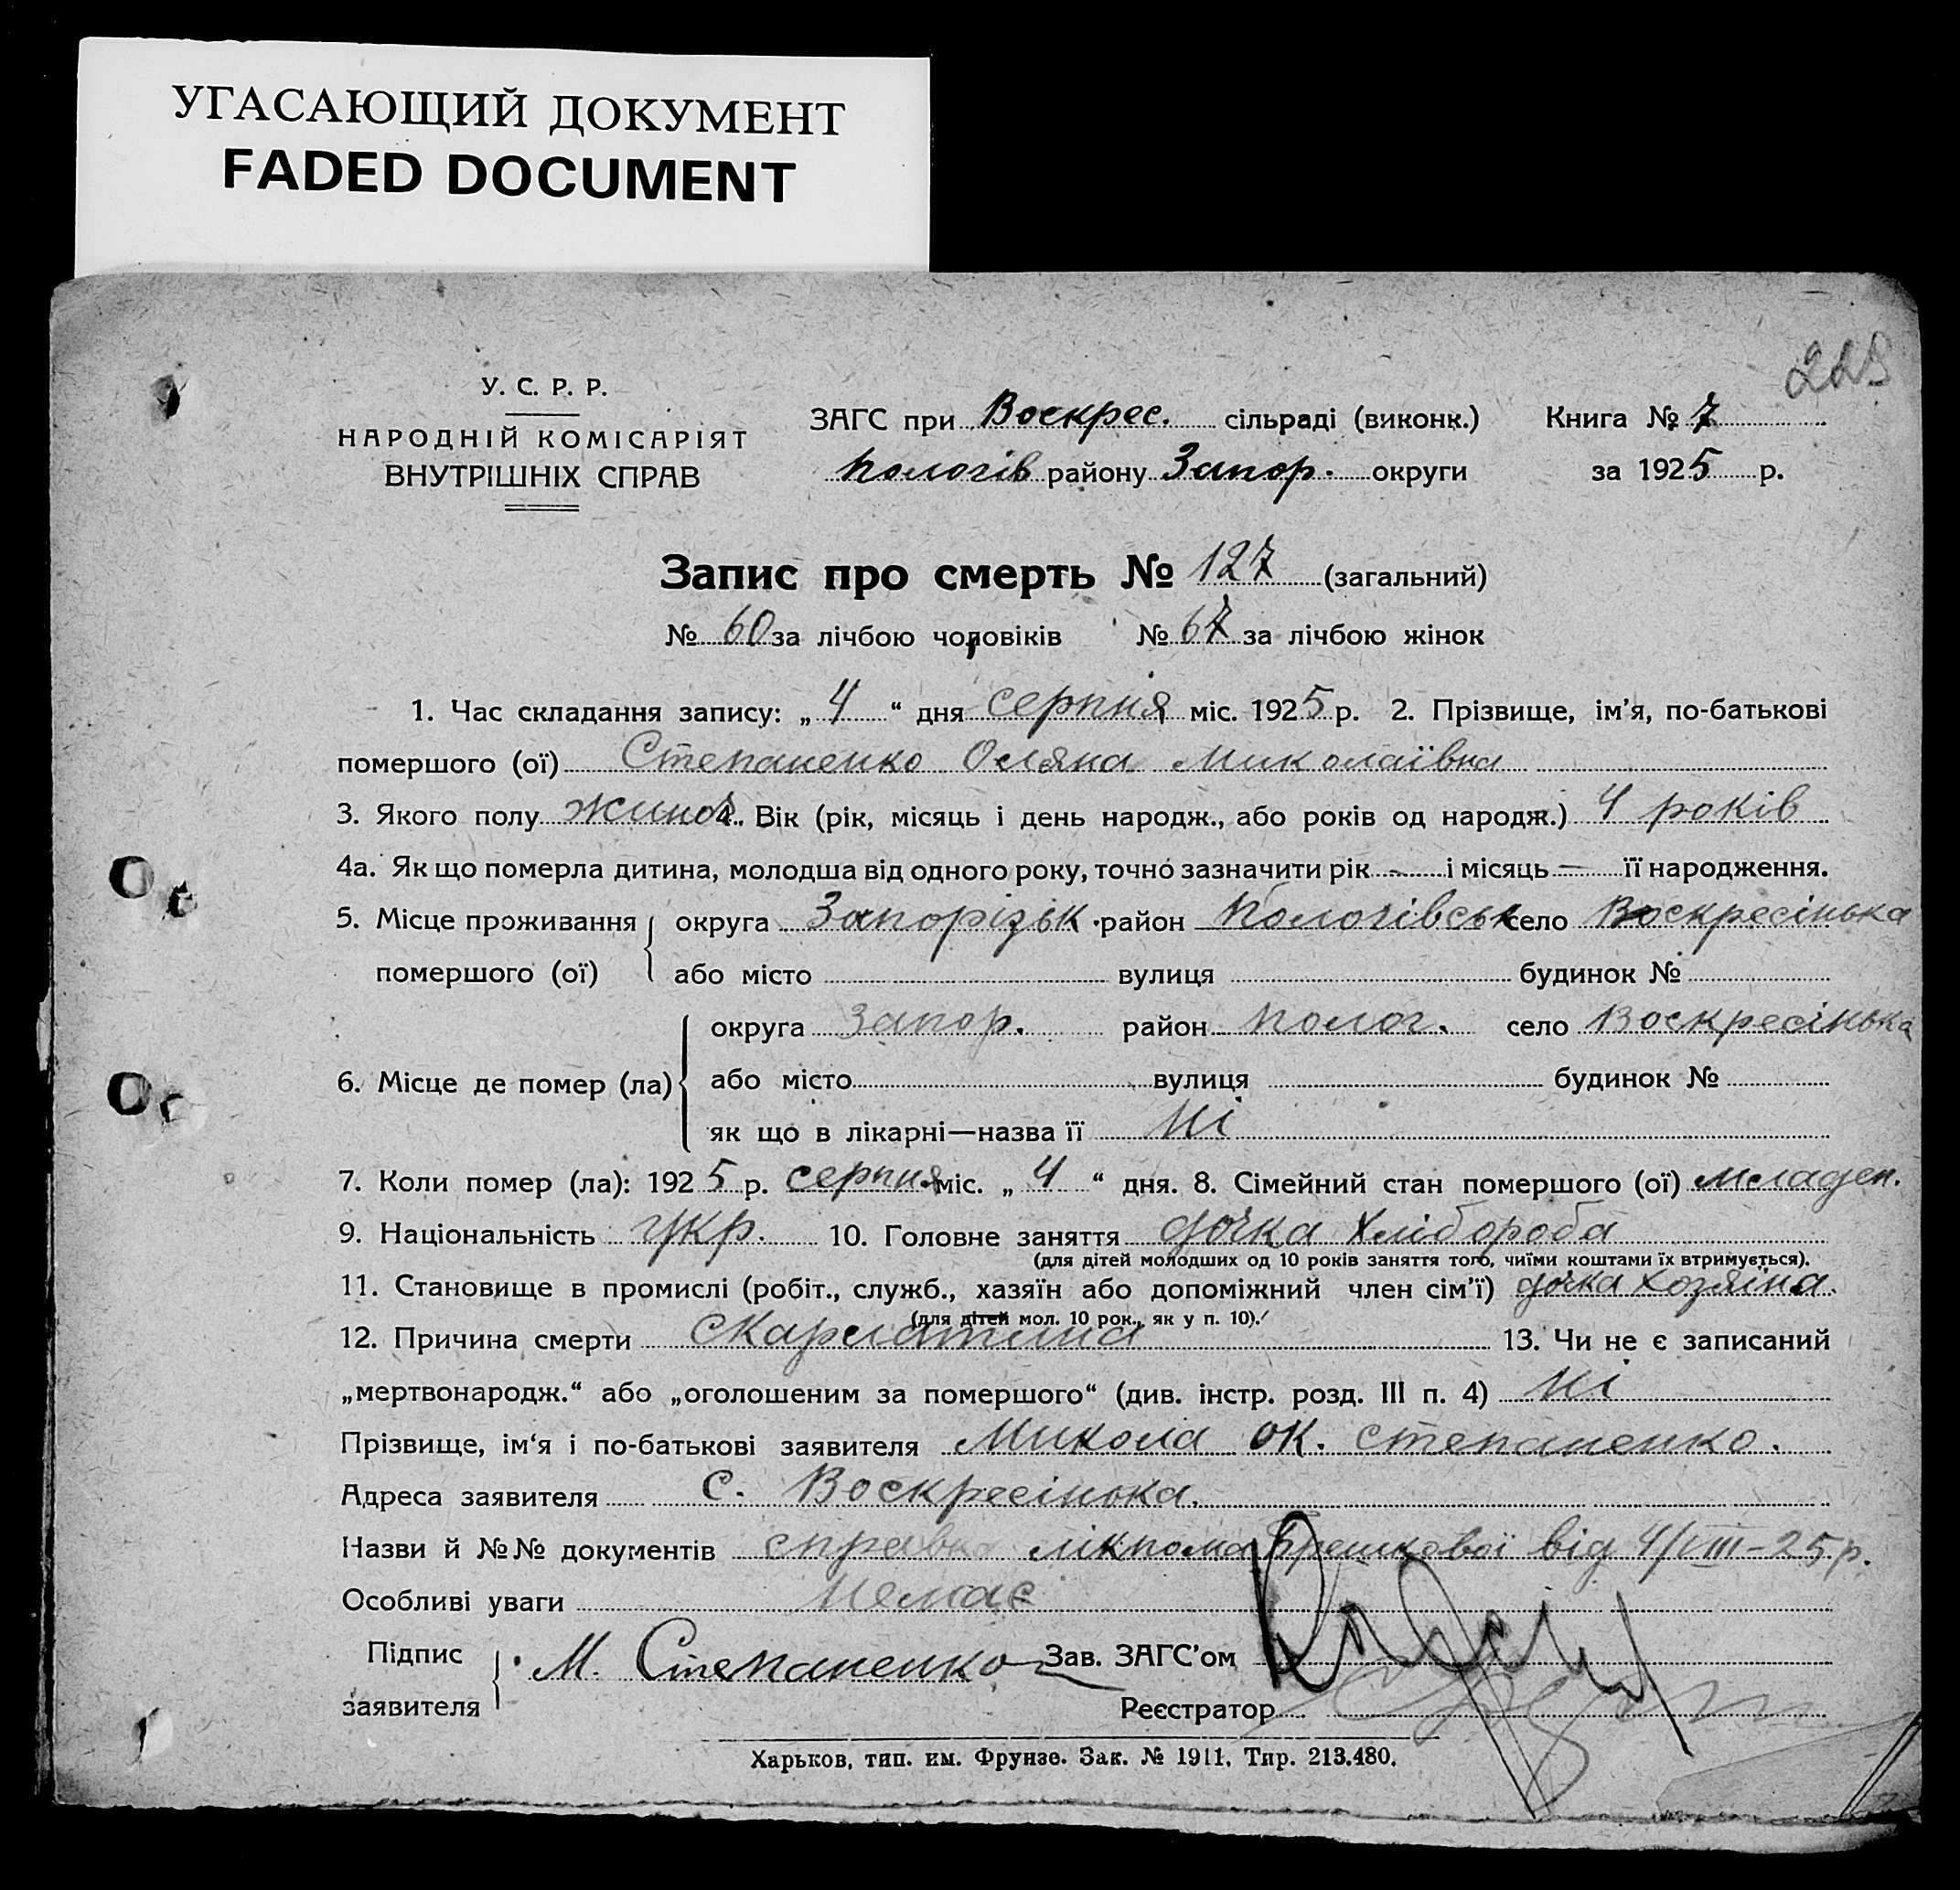 УГАСАЮЩИЙ ДОКУМЕНТ
FADED DOCUMENT
225
У. С. Р. Р.
НАРОДНІЙ КОМІСАРІЯТ
ВНУТРІШНІХ СПРАВ
ЗАГС при Воскрес. сільраді (виконк.) Книга № 7
Пологів району Запор. округи за 1925 р.
Запис про смерть № 127 (загальний)
№ 60 за лічбою чоловіків № 67 за лічбою жінок
1. Час складання запису: „ 4 “ дня серпня міс. 1925 р. 2. Прізвище, ім’я, по-батькові
помершого (ої) Степаненко Оляна Миколаївна
3. Якого полу жиноч. 4. Вік (рік, місяць і день народж., або років од народж.) 4 років
4а. Як що померла дитина, молодша від одного року, точно зазначити рік — і місяць — її народження.
5. Місце проживання округа Запорізьк. район Пологівськ село Воскресінька
помершого (ої) або місто вулиця будинок №
округа Запор. район Полог. село Воскресінька
6. Місце де помер (ла) або місто вулиця будинок №
як що в лікарні—назва її ні
7. Коли помер (ла): 1925 р. серпня міс. „ 4 “ дня. 8. Сімейний стан помершого (ої) младен.
9. Національність укр. 10. Головне заняття дочка хлібороба
(для дітей молодших од 10 років заняття того, чиїми коштами їх втримується).
11. Становище в промислі (робіт., служб., хазяїн або допоміжний член сім’ї) дочка хозяїна.
(для дітей мол. 10 рок., як у п. 10).
12. Причина смерти скарлатина 13. Чи не є записаний
„мертвонародж.“ або „оголошеним за помершого“ (див. інстр. розд. III п. 4) ні
Прізвище, ім‘я і по-батькові заявителя Микола ок. степаненко.
Адреса заявителя с. Воскресінька.
Назви й №№ документів справка лікпома від 4/VIII-25 р.
Особливі уваги немає
Підпис заявителя М. Степаненко Зав. ЗАГС’ом
Реєстратор
Харьков, тип. им. Фрунзе. Зак. № 1911. Тир. 213.480.